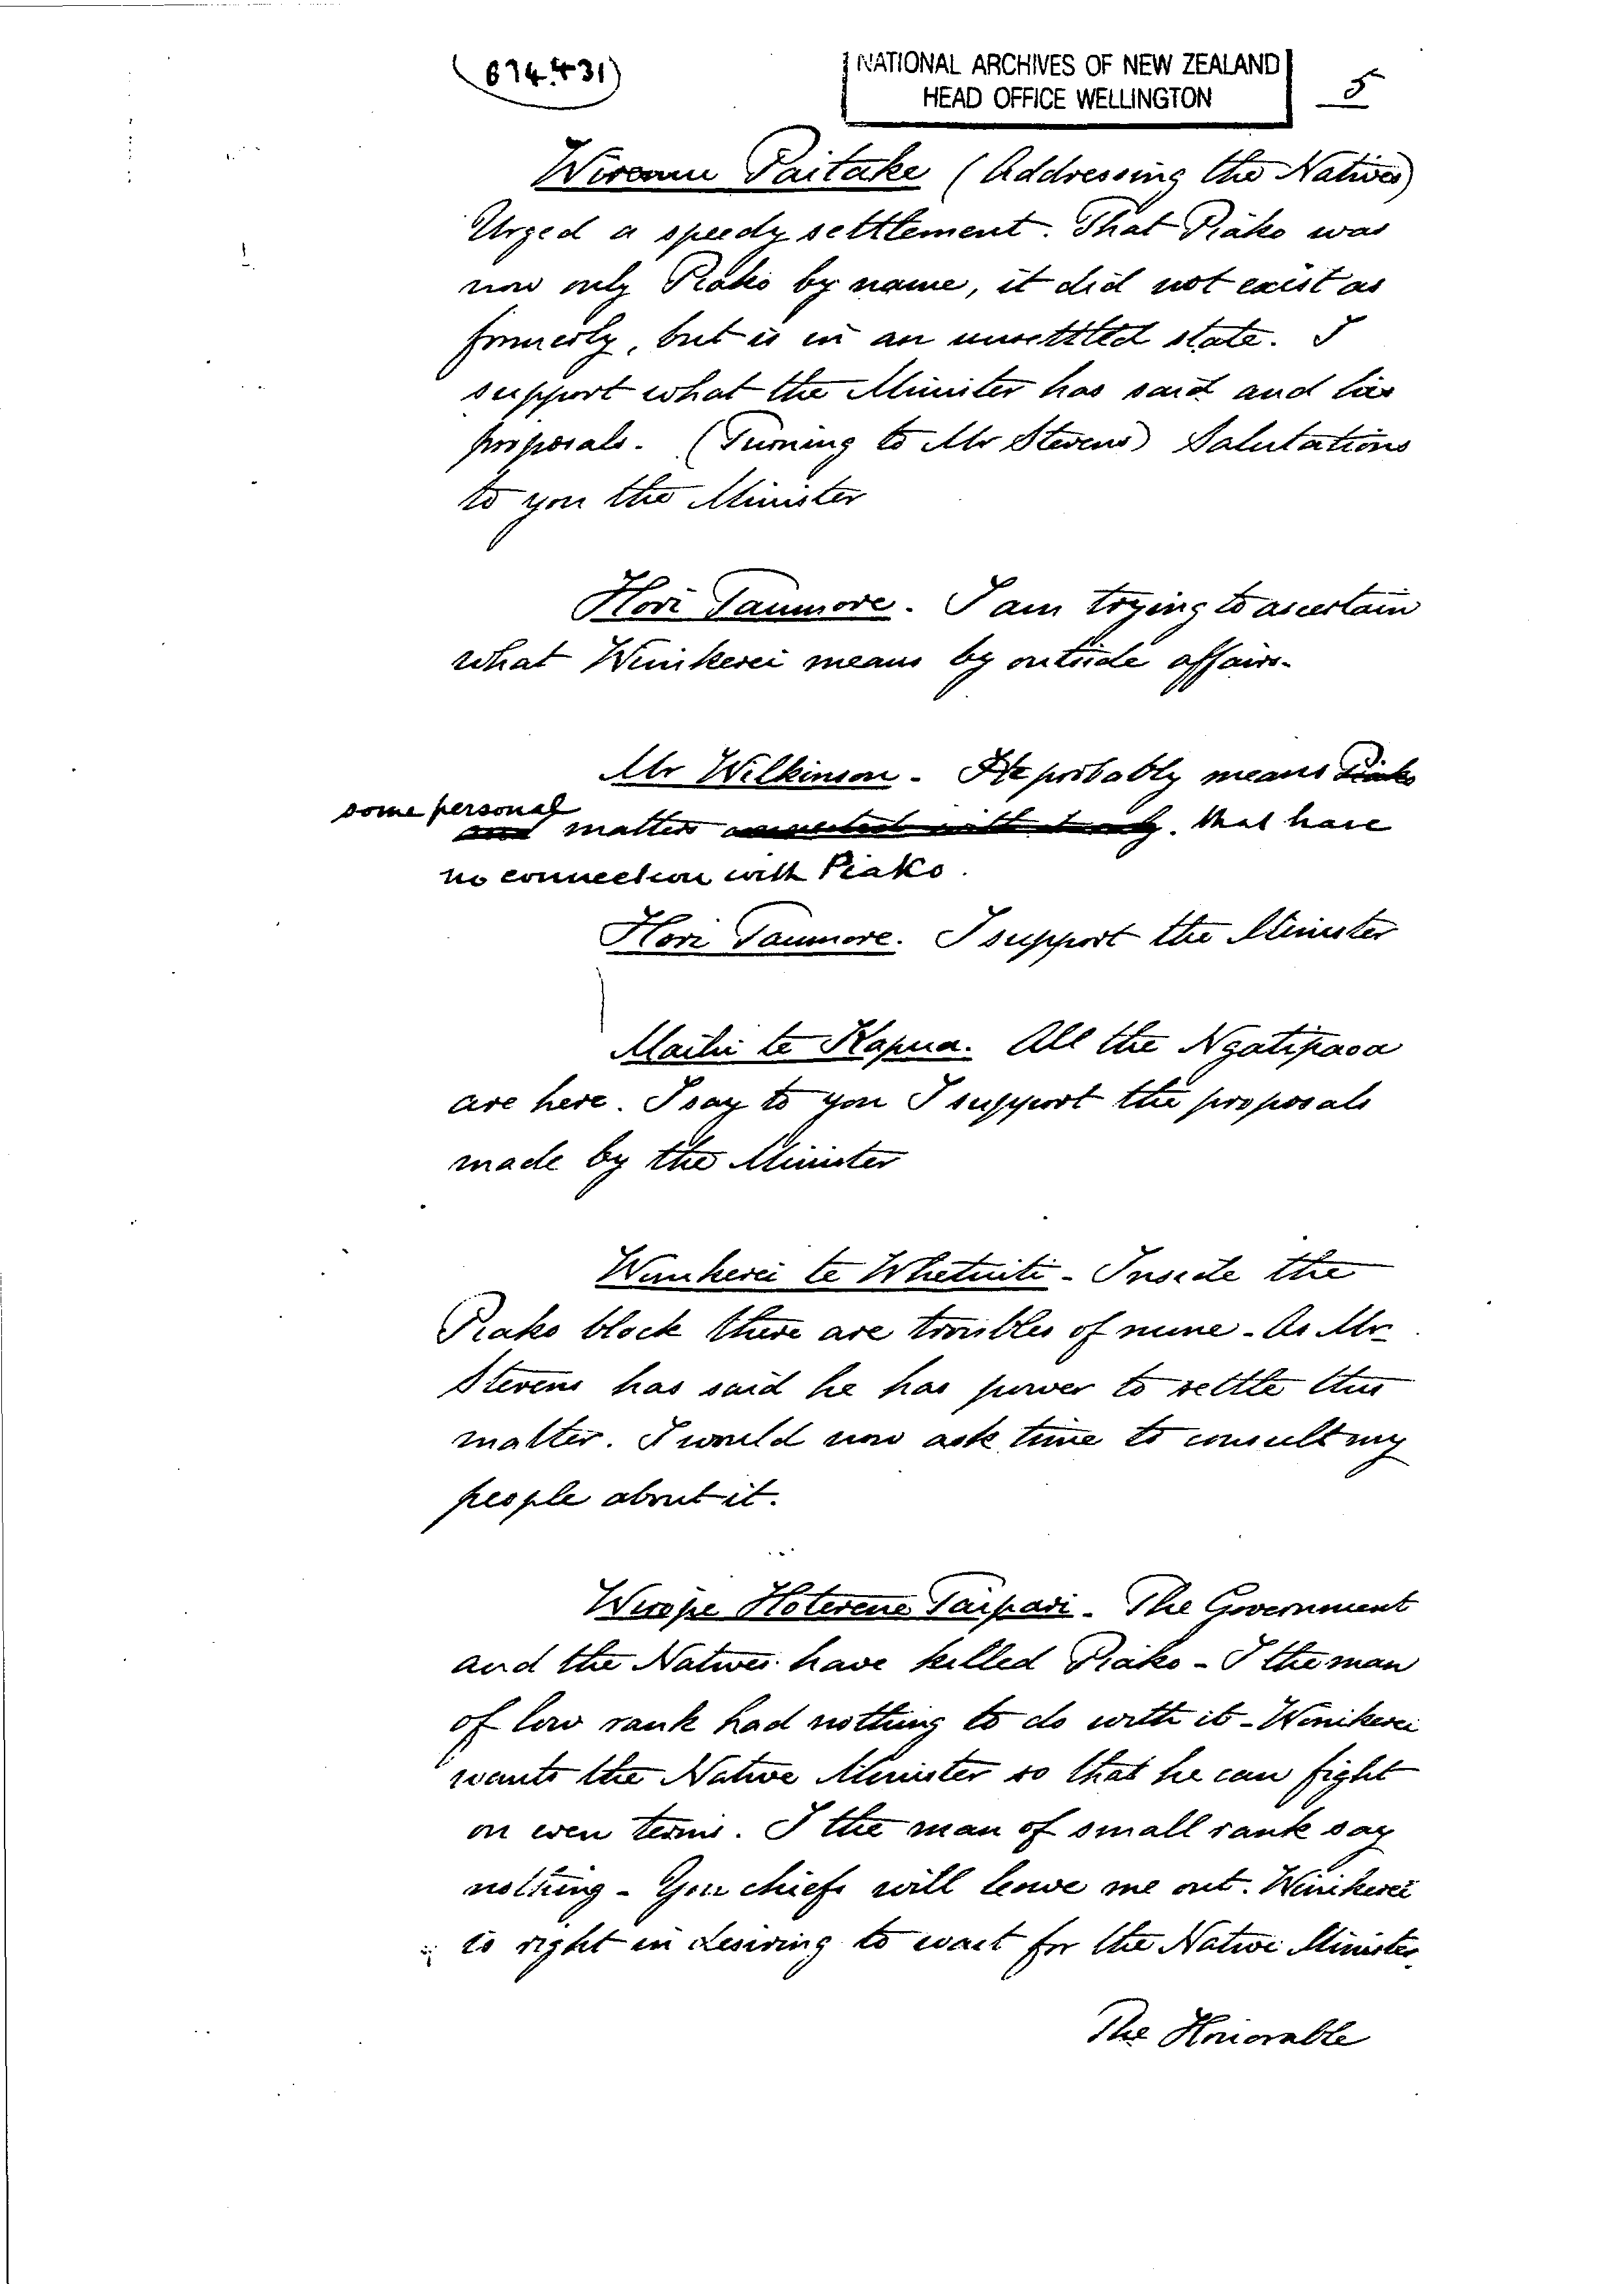 (674.431)
NATIONAL ARCHIVES OF NEW ZEALAND
HEAD OFFICE WELLINGTON
5
Wiremu Paitake (Addressing the Natives)
Urged a speedy settlement. That Piako was
now only Piako by name, it did not exist as
formerly, but is in an unsettled state. I
support what the Minister has said and his
proposals. (Turning to Mr Stevens) Salutations
to you the Minister
Hori Taumore. I am trying to ascertain
what Winikerei means by outside affairs.
Mr Wilkinson - He probably means Piako
some personal
and matters connected with. that have
no connection with Piako.
Hori Taumore. I support the Minister
Maihi te Kapua. All the Ngatipaoa
are here. I say to you I support the proposals
made by the Minister
Winikerei te Whetuiti - Inside the
Piako block there are troubles of mine - As Mr
Stevens has said he has power to settle this
matter. I would now ask time to consult my
people about it.
Wirope Hoterene Taipari - The Government
and the Natives have killed Piako - I the man
of low rank had nothing to do with it - Winikerei
wants the Native Minister so that he can fight
on even terms. I the man of small rank say
nothing - You chiefs will leave me out. Winikerei
is right in desiring to wait for the Native Minister.
The Honorable